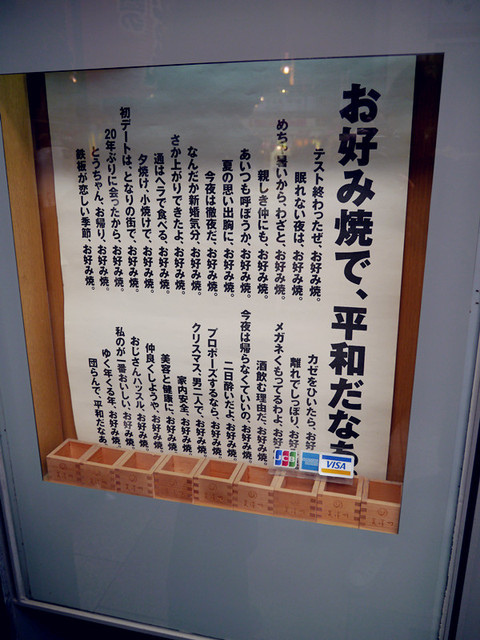 お好み焼で、平和だなぁ
テスト終わったぜ、お好み焼。
眠れない夜は、お好み焼。
めちゃ暑いから、わざと、お好み焼。
親しき仲にも、お好み焼。
あいつも呼ぼうか、お好み焼。
夏の思い出胸に、お好み焼。
今夜は徹夜だ、お好み焼。
なんだか新婚気分、お好み焼。
さか上がりできたよ、お好み焼。
通はヘラで食べる、お好み焼。
夕焼け、小焼けで、お好み焼。
初デートは、となりの街で、お好み焼。
20年ぶりに会ったから、お好み焼。
とうちゃん、お帰り、お好み焼。
鉄板が恋しい季節、お好み焼。
カゼをひいたら、お好
離れでしっぽり、お好
メガネくもってるわよ、お好
酒飲む理由だ、お好み焼
今夜は帰らなくていいの、お好み焼
二日酔いだよ、お好み焼
プロポーズするなら、お好み焼
クリスマス、男二人で、お好み焼
家内安全、お好み焼
美容と健康に、お好み焼
仲良くしようや、お好み焼
おじさんハッスル、お好み焼
私のが一番おいしい、お好み焼
ゆく年くる年、お好み焼
団らんで、平和だなあ
JCB
VISA